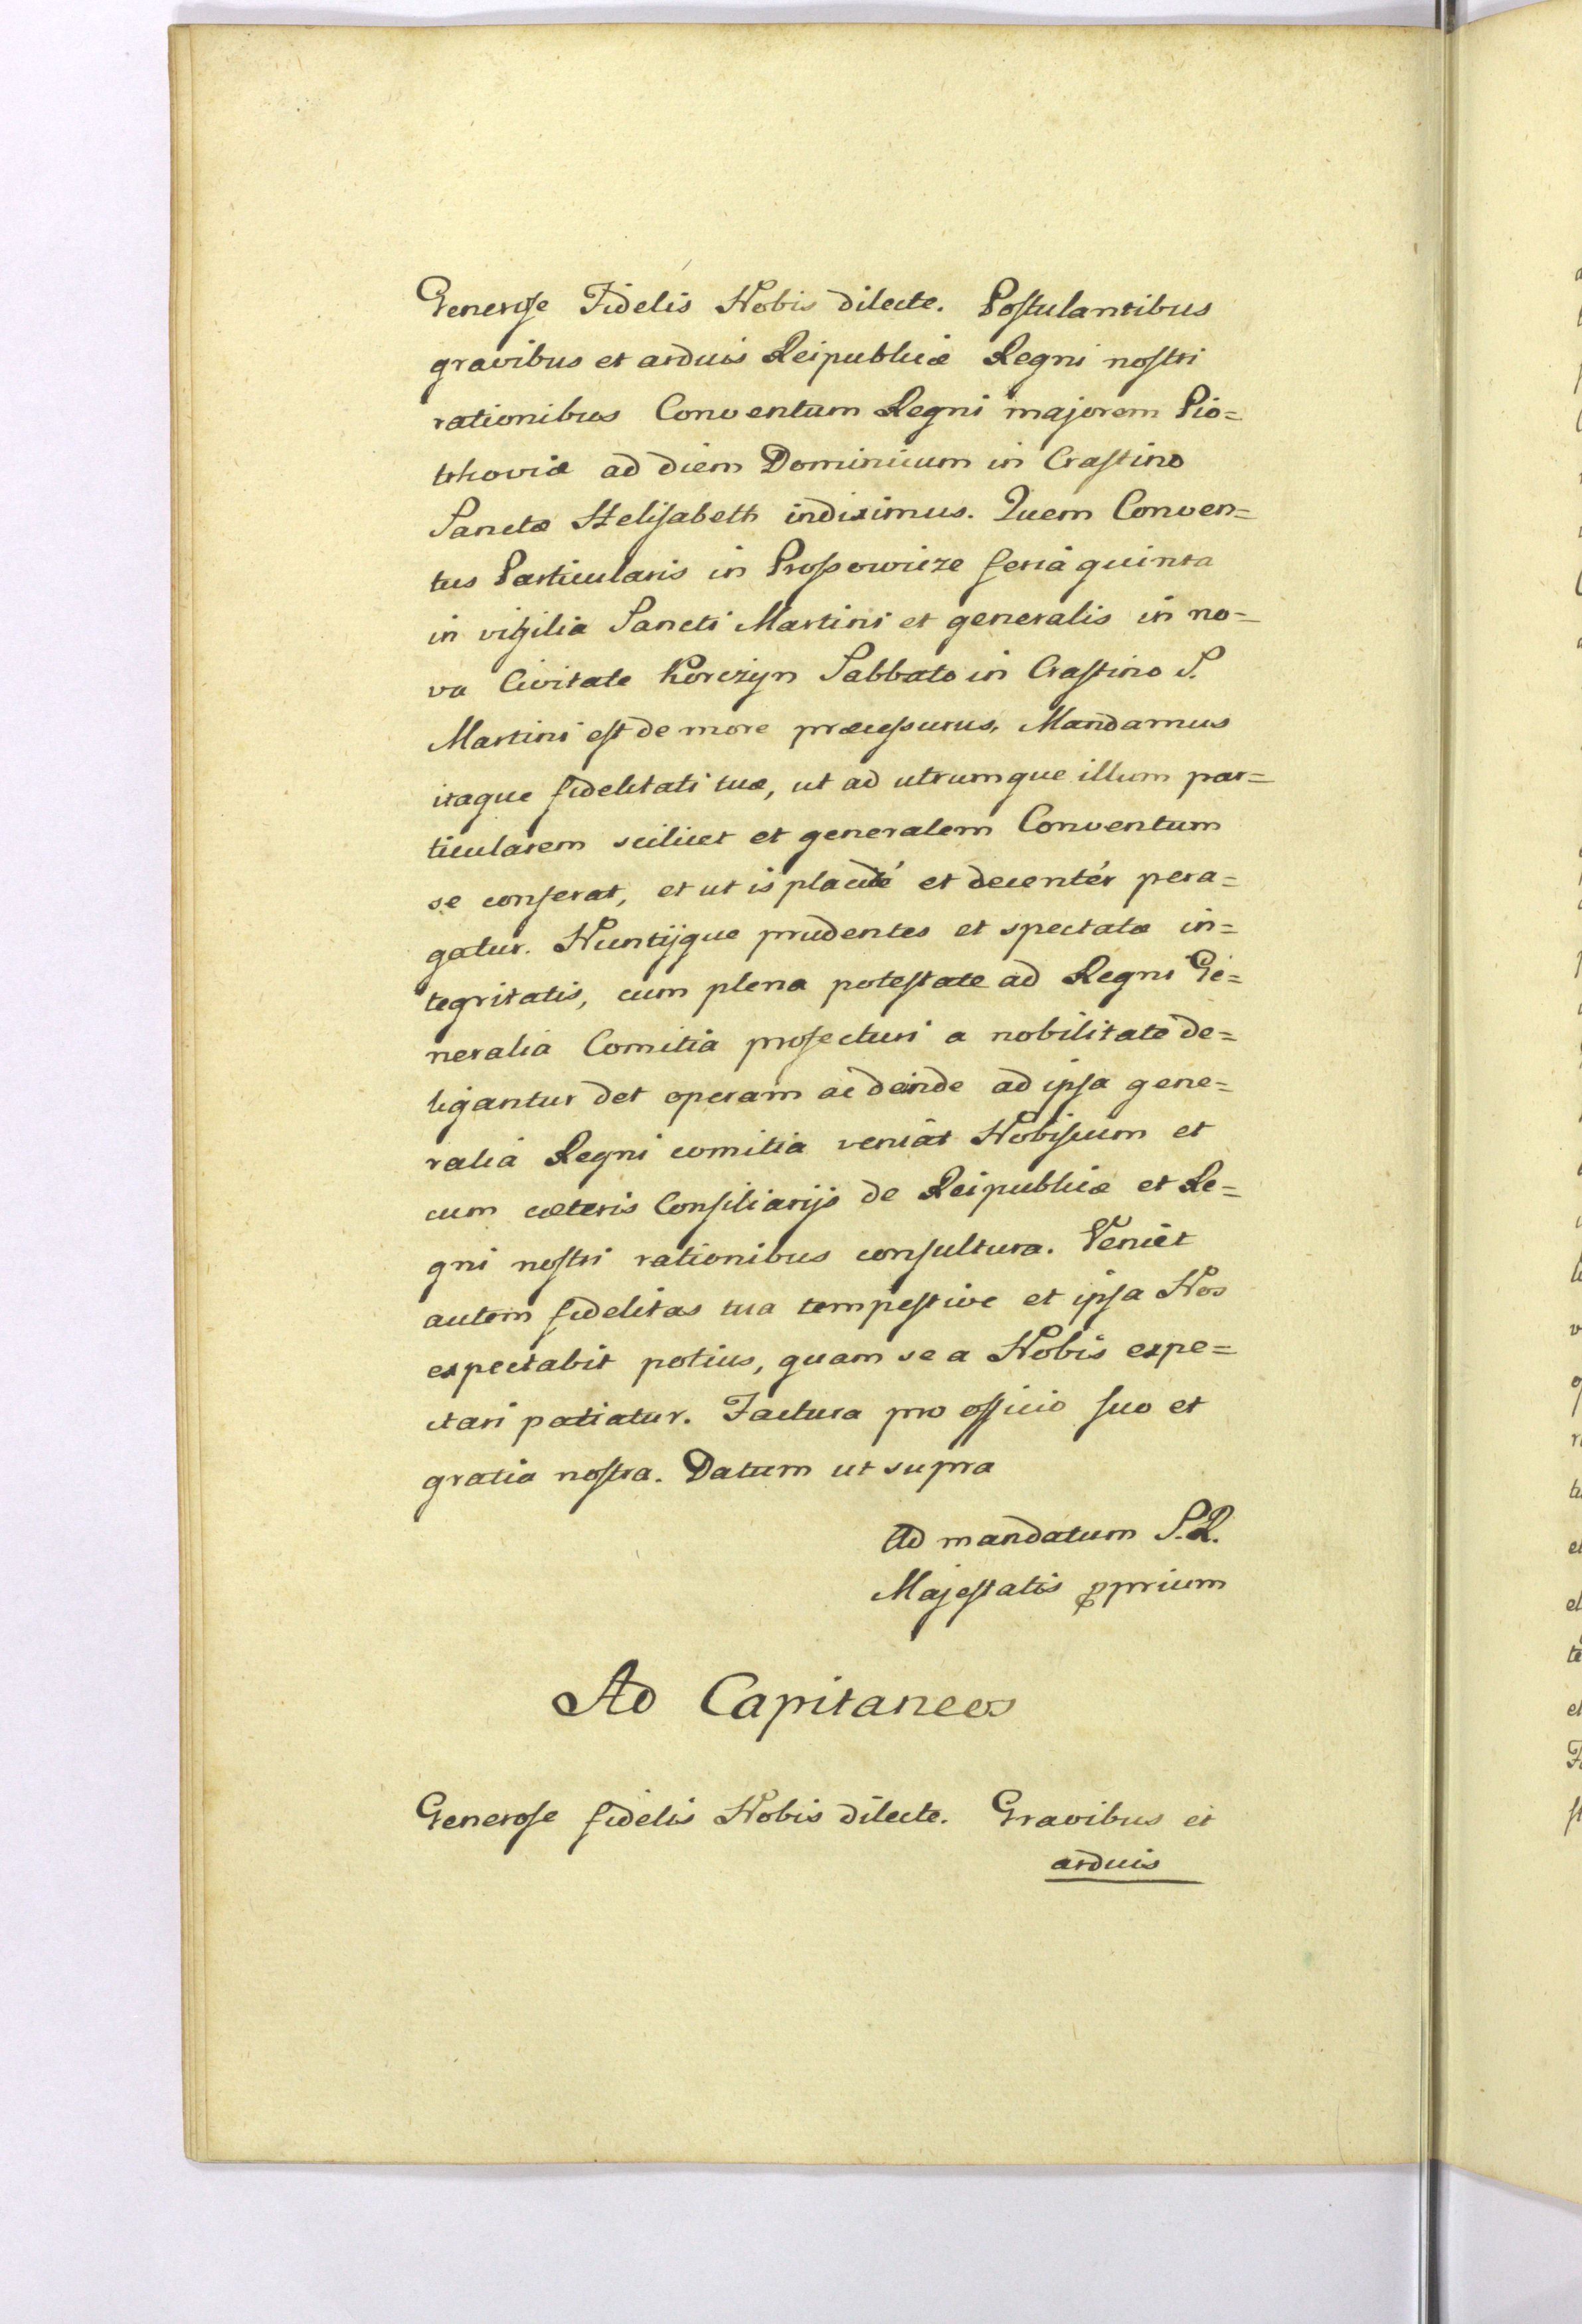 Generose Fidelis Nobis dilecte. Postulantibus
gravibus et arduis Reipublicæ Regni nostri
rationibus Conventum Regni majorem Pio=
trkoviæ ad diem Dominicum in Crastino
Sanctæ Helisabeth indiximus. Quem Conven=
tus Particularis in Proszowicze feria quinta
in vigilia Sancti Martini et generalis in no=
va Civitate Korczyn Sabbato in Crastino S.
Martini est de more præcessurus, Mandamus
itaque fidelitati tuæ, ut ad utrumque illum par=
ticularem scilicet et generalem Conventum
se conferat, et ut is placidé et decentér pera=
gatur. Nuntijque prudentes et spectatæ in=
tegritatis, cum plena potestate ad Regni Ge=
neralia Comitia profecturi a nobilitate de=
ligantur det operam ac deinde ad ipsa gene=
ralia Regni comitia veniat Nobiscum et
cum cæteris Consiliarijs de Reipublicæ et Re=
gni nostri rationibus consultura. Veniet
autem fidelitas tua tempestive et ipsa Nos
expectabit potius, quam se a Nobis expe=
ctari patiatur. Factura pro officio suo et
gratia nostra. Datum ut supra
Ad mandatum S.R.
Majestatis pprium
Ad Capitaneos
Generose fidelis Nobis dilecte. Gravibus et
arduis